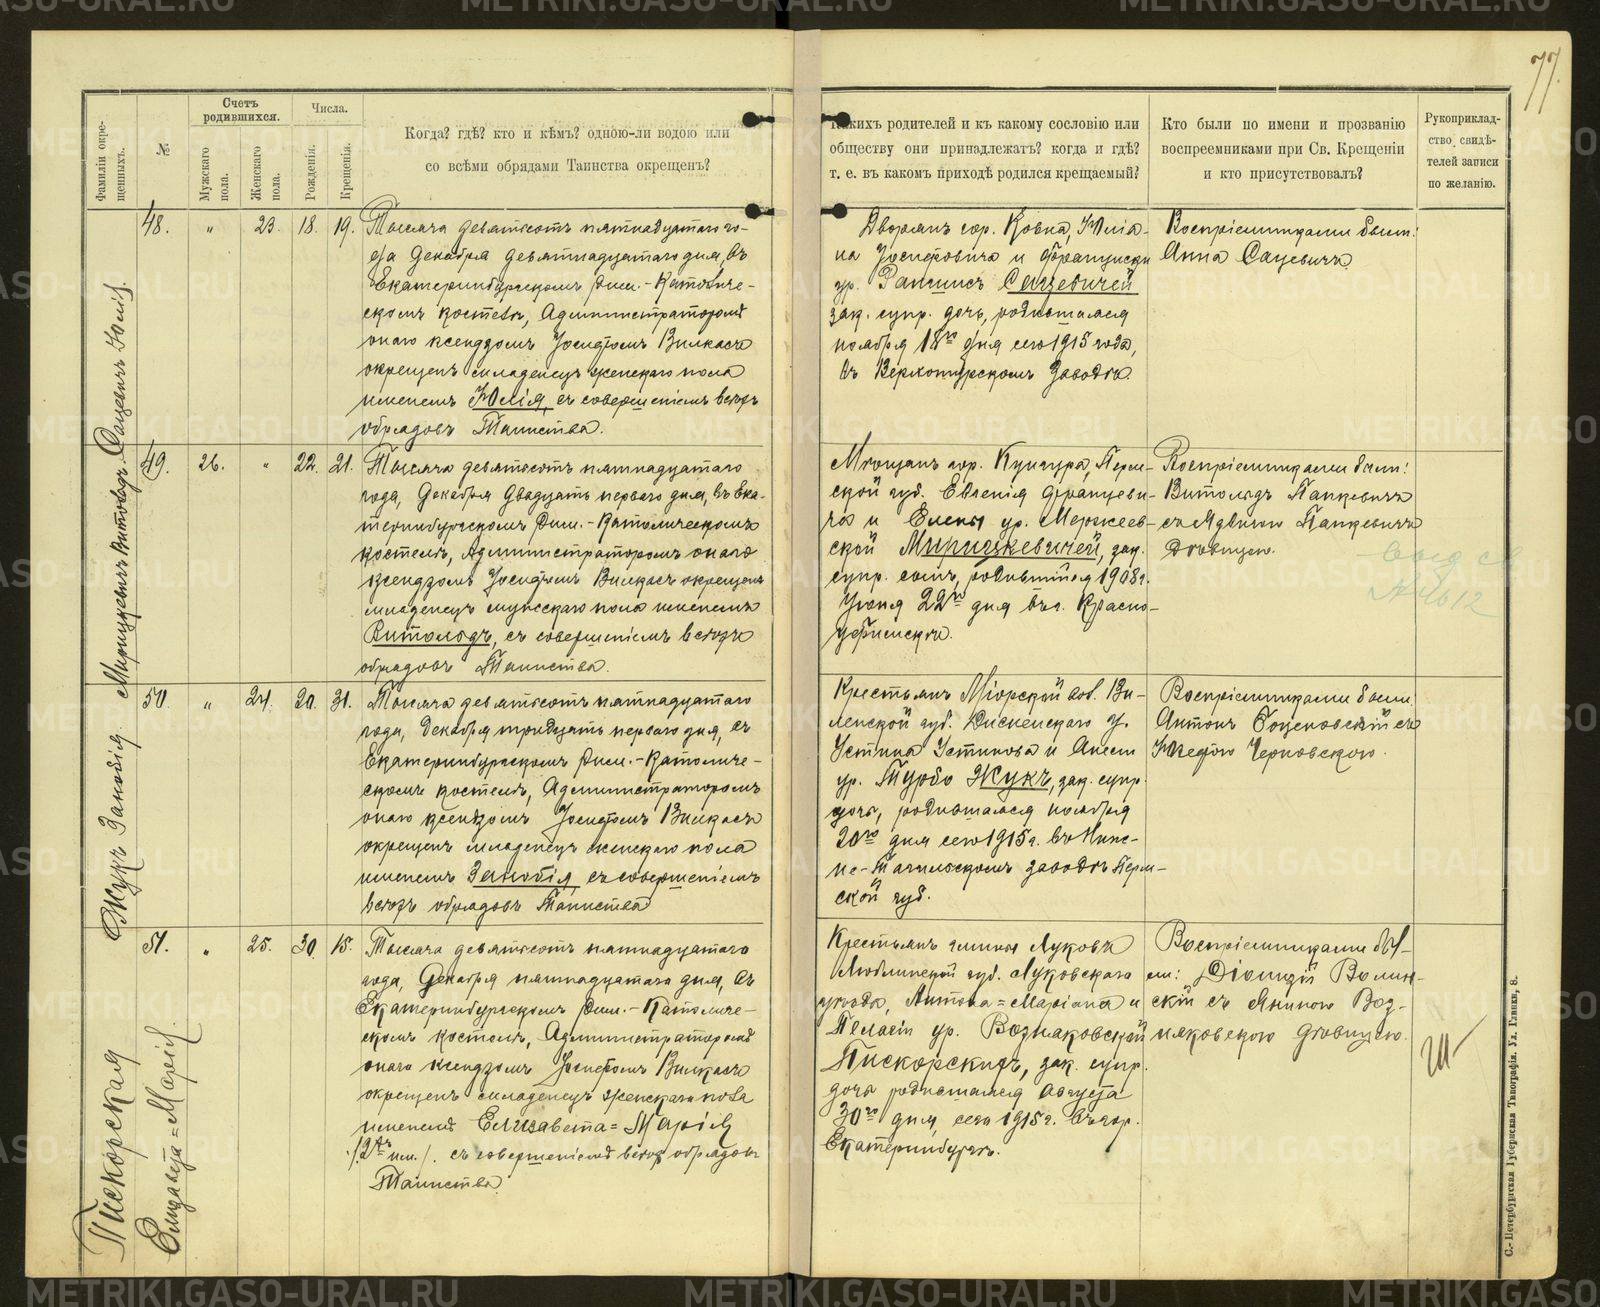 77.
Фамиліи окре-
щенныхъ.
№
Счетъ
родившихся.
Мужскаго
пола.
Женскаго
пола.
Числа.
Рожденія.
Крещенія.
Когда? гдѣ? кто и кѣмъ? одною-ли водою или
со всѣми обрядами Таинства окрещенъ?
Какихъ родителей и къ какому сословію или
обществу они принадлежатъ? когда и гдѣ?
т. е. въ какомъ приходѣ родился крещаемый?
Кто были по имени и прозванію
воспреемниками при Св. Крещеніи
и кто присутствовалъ?
Рукоприклад-
ство свидѣ-
телей записи
по желанію.
Сацевичъ Юлія.
48. " 23. 18. 19.
Тысяча девятьсотъ пятнадцатаго го-
да Декабря девятнадцатаго дня, въ
Екатеринбургскомъ Рим.-Католиче-
скомъ костелѣ, Администраторомъ
онаго ксендзомъ Іосифомъ Вилкасъ
окрещенъ младенецъ женскаго пола
именемъ Юлія, съ совершеніемъ всѣхъ
обрядовъ Таинства.
Дворянъ гор. Ковна, Юліа-
на Іосифовича и Францишки
ур. Сацевичей
зак. супр. дочь, родившаяся
ноября 18го дня сего 1915 года,
въ Верхотурскомъ Заводѣ.
Воспріемниками были:
Анна Сацевичъ.
Мирицкевичъ Витольдъ.
49. 26. " 22. 21.
Тысяча девятьсотъ пятнадцатаго
года, Декабря двадцать перваго дня, въ Ека-
теринбургскомъ Рим.-Католическомъ
костелѣ, Администраторомъ онаго
ксендзомъ Іосифомъ Вилкасъ окрещенъ
младенецъ мужескаго пола именемъ
Витольдъ, съ совершеніемъ всѣхъ
обрядовъ Таинства.
Мѣщанъ гор. Кунгура, Перм-
ской губ. Евгенія Францеви-
ча и Елены ур. Мержеев-
ской Мирицкевичей, зак.
супр. сынъ, родившійся 1908 г.
Іюня 22го дня въ г. Красно-
уфимскѣ.
Воспріемниками были:
Витольдъ Папкевичъ
съ Ядвигою Папкевичъ
дѣвицею.
Жукъ Зановія
50. " 24. 20. 31.
Тысяча девятьсотъ пятнадцатаго
года, Декабря тридцать перваго дня, въ
Екатеринбургскомъ Рим.-Католиче-
скомъ костелѣ, Администраторомъ
онаго ксендзомъ Іосифомъ Вилкасъ
окрещенъ младенецъ женскаго пола
именемъ Зановія, съ совершеніемъ
всѣхъ обрядовъ Таинства
Крестьянъ Міорской вол. Ви-
ленской губ. Дисненскаго у.
Устина Устинова и Анели
ур. Турбо Жукъ, зак. супр.
дочь, родившаяся ноября
20го дня сего 1915 г. въ Ниж-
не-Тагильскомъ заводѣ Перм-
ской губ.
Воспріемниками были
Антонъ съ
Юзефою Черновскою.
Пискорская
Елизавета=Марія.
51. " 25. 30. 15.
Тысяча девятьсотъ пятнадцатаго
года, Декабря пятнадцатаго дня, въ
Екатеринбургскомъ Рим.-Католиче-
скомъ костелѣ, Администраторомъ
онаго ксендзомъ Іосифомъ Вилкасъ
окрещенъ младенецъ женскаго пола
именемъ Елизавета=Марія
/2хъ им./. съ совершеніемъ всѣхъ обрядовъ
Таинства
Крестьянъ гмины Луковъ
Люблинской губ. Луковскаго
уѣзда, Антона=Маріана и
Пелагіи ур. Возняковской
Пискорскихъ, зак. супр.
дочь родившаяся Августа
30го дня, сего 1915 г. въ гор.
Екатеринбургѣ.
Воспріемниками бы-
ли: Діонизій Волин-
скій съ Яниною Воз-
няковскою дѣвицею.
С.-Петербургская Губернская Типографія. Ул. Глинки, 8.
METRIKI.GASO-URAL.RU